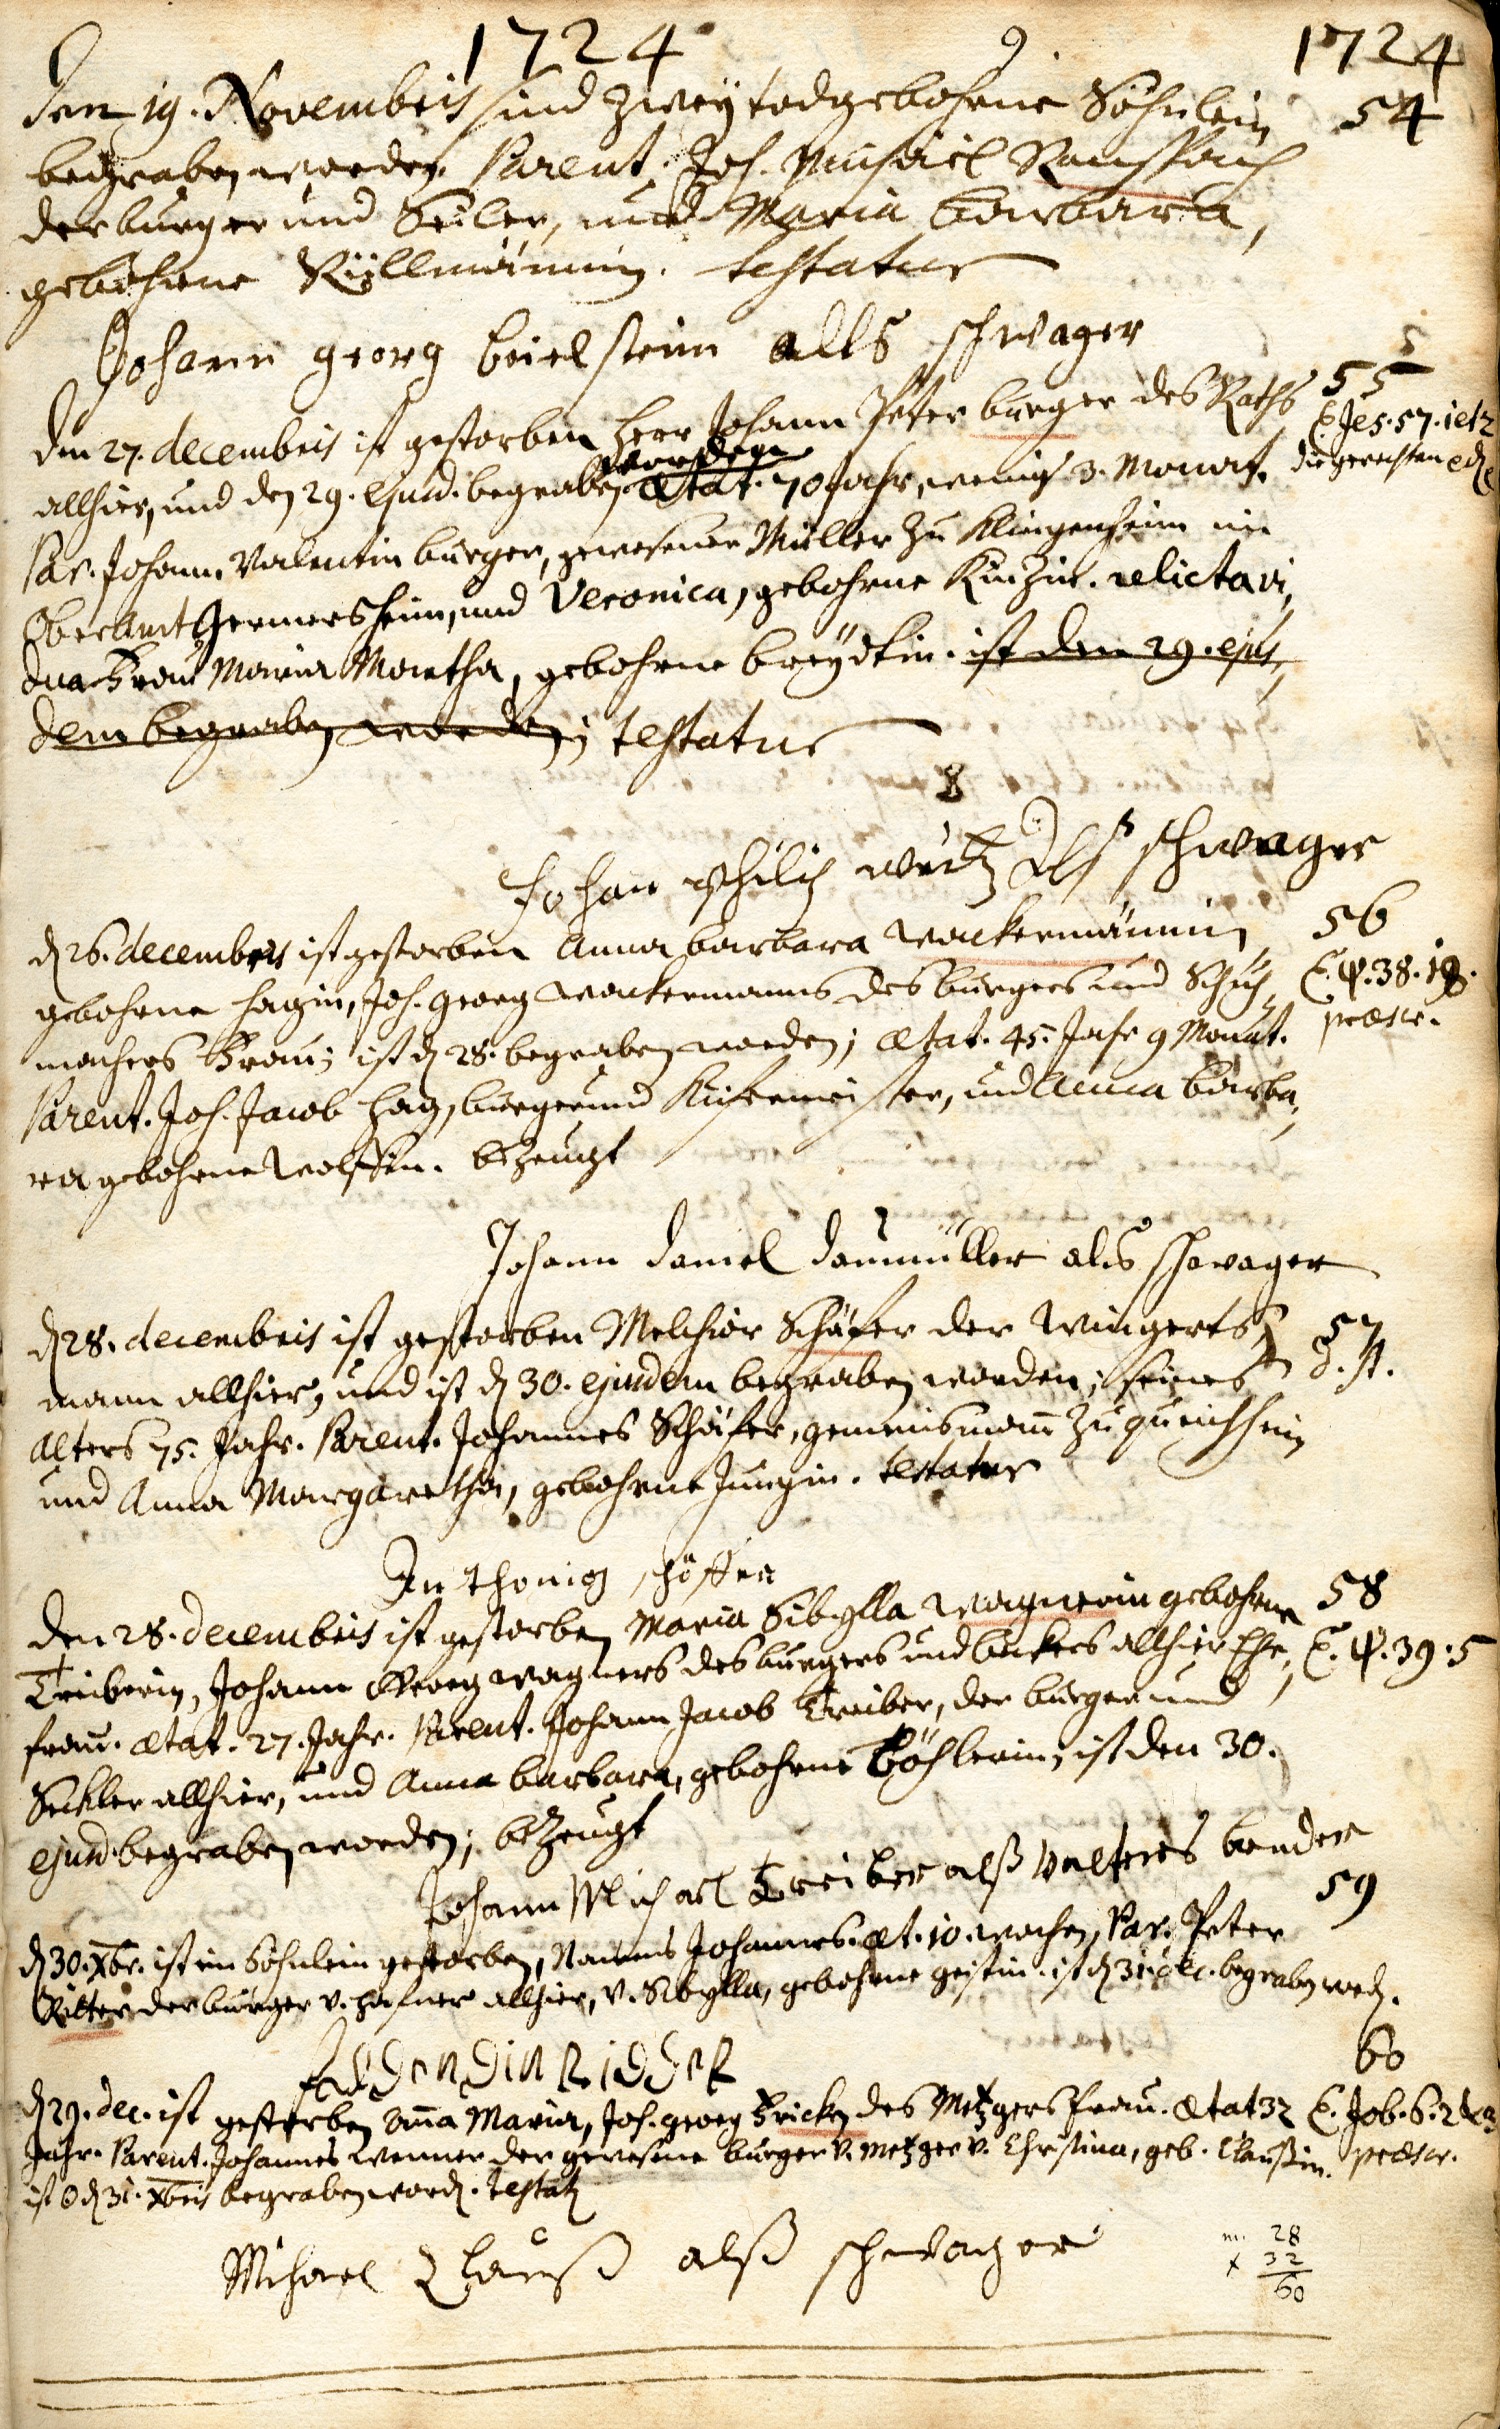 1724 9. 1724
Den 19. Novembris sind zwey todgebohrne Söhnlein 54
begraben worden. Parent. Joh. Michael
der burger und Seiler, und Maria barbara,
gebohrne Küllmännin. testatur
Johann georg beielstein alls schwager
Den 27. decembris ist gestorben Herr Johann Peter burger des Raths 55
allhier, und den 29. Ejusd. begraben worden Ætat. 70 Jahr, wenig 3. Monat. E. Jes. 57. 1 et 2
Par. Johann Valentin burger, gewesener Müller zu Klingenheim im die gerechten
OberAmt Germersheim, und Veronica, gebohrne Kinzin. relicta vi,
dua Frau Maria Martha, gebohrne breydtin. ist den 29. ejus,
dem begraben worden; testatur
8
Johan philip als schwager
d 26. decembris ist gestorben Anna barbara wackermännin 56
gebohrne Hagin, Joh. georg wackermanns des burgers und Schuh, E. ψ. 38. 18.
machers Frau; ist d 28. begraben worden; Ætat. 45. Jahr 9 Monat. præscr.
Parent. Joh. Jacob Hag, burger und Kufermeister, und Anna barba,
ra gebohrne wolffin. bezeugt
Johann daniel daumüller als schwager
d 28. decembris ist gestorben Melchior Schäfer der wingerts, 57
mann allhier, und ist d 30. ejusdem begraben worden; seines
alters 75. Jahr. Parent. Johannes Schäfer, gemeinsmann zu queichheim
und Anna Margaretha, gebohrne Jungin. testatur
An thonig schöffer
Den 28. decembris ist gestorben Maria Sibylla wagnerin gebohrne 58
Treiberin, Johann Georg wagners des burgers und beckers allhier Ehe, E. ψ. 39. 5
frau. Ætat. 27. Jahr. Parent. Johann Jacob Treiber, der burger und
Seckler allhier, und Anna barbara, gebohrne böhlerin, ist den 30.
ejusd. begraben worden; bezeugt
Johann Michael Treiber alß bruder
59
d 30. xbr. ist ein Söhnlein gestorben, Namens Johannes. Æt. 10. wochen, Par. Peter
Ritter der burger v. Hafner allhier, v. Sibylla, gebohrne geistin. ist d 31. dec. begraben word.
60
d 29. dec. ist gestorben Anna Maria, Joh. georg Fricken des Metzgers frau. Ætat 32 E. Job. 6. 2 & 3
Jahr. Parent. Johannes wenner der gewesene burger v. metzger v. Christina, geb. Claußin. præscr.
ist d 31. xbris begraben word. testat
Michael Clauß alß schwager
m. 28
f 32
60